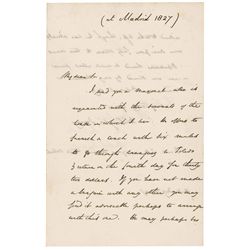 (at Madrid 1827)
My dear Sir
I send you a man who is
acquainted with the servants of the
house in which I live. He offers to
furnish a coach with six mules
to go through to Toledo
& return on the fourth day for thirty
five dollars. If you have not made
a bargain with any other you may
find it advisable perhaps to arrange
with this one. He may perhaps be